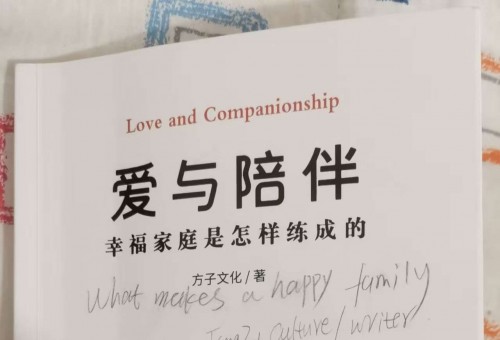 Love and Companionship
爱与陪伴
幸福家庭是怎样练成的
方子文化/著
What makes a happy family
culture/writer